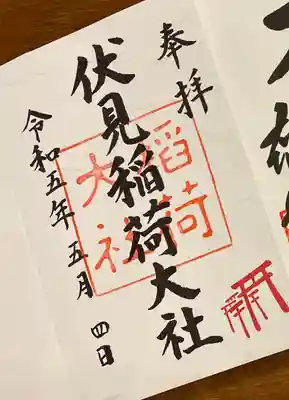 奉拝
伏見稲荷大社
稲荷
大社
令和五年五月四日